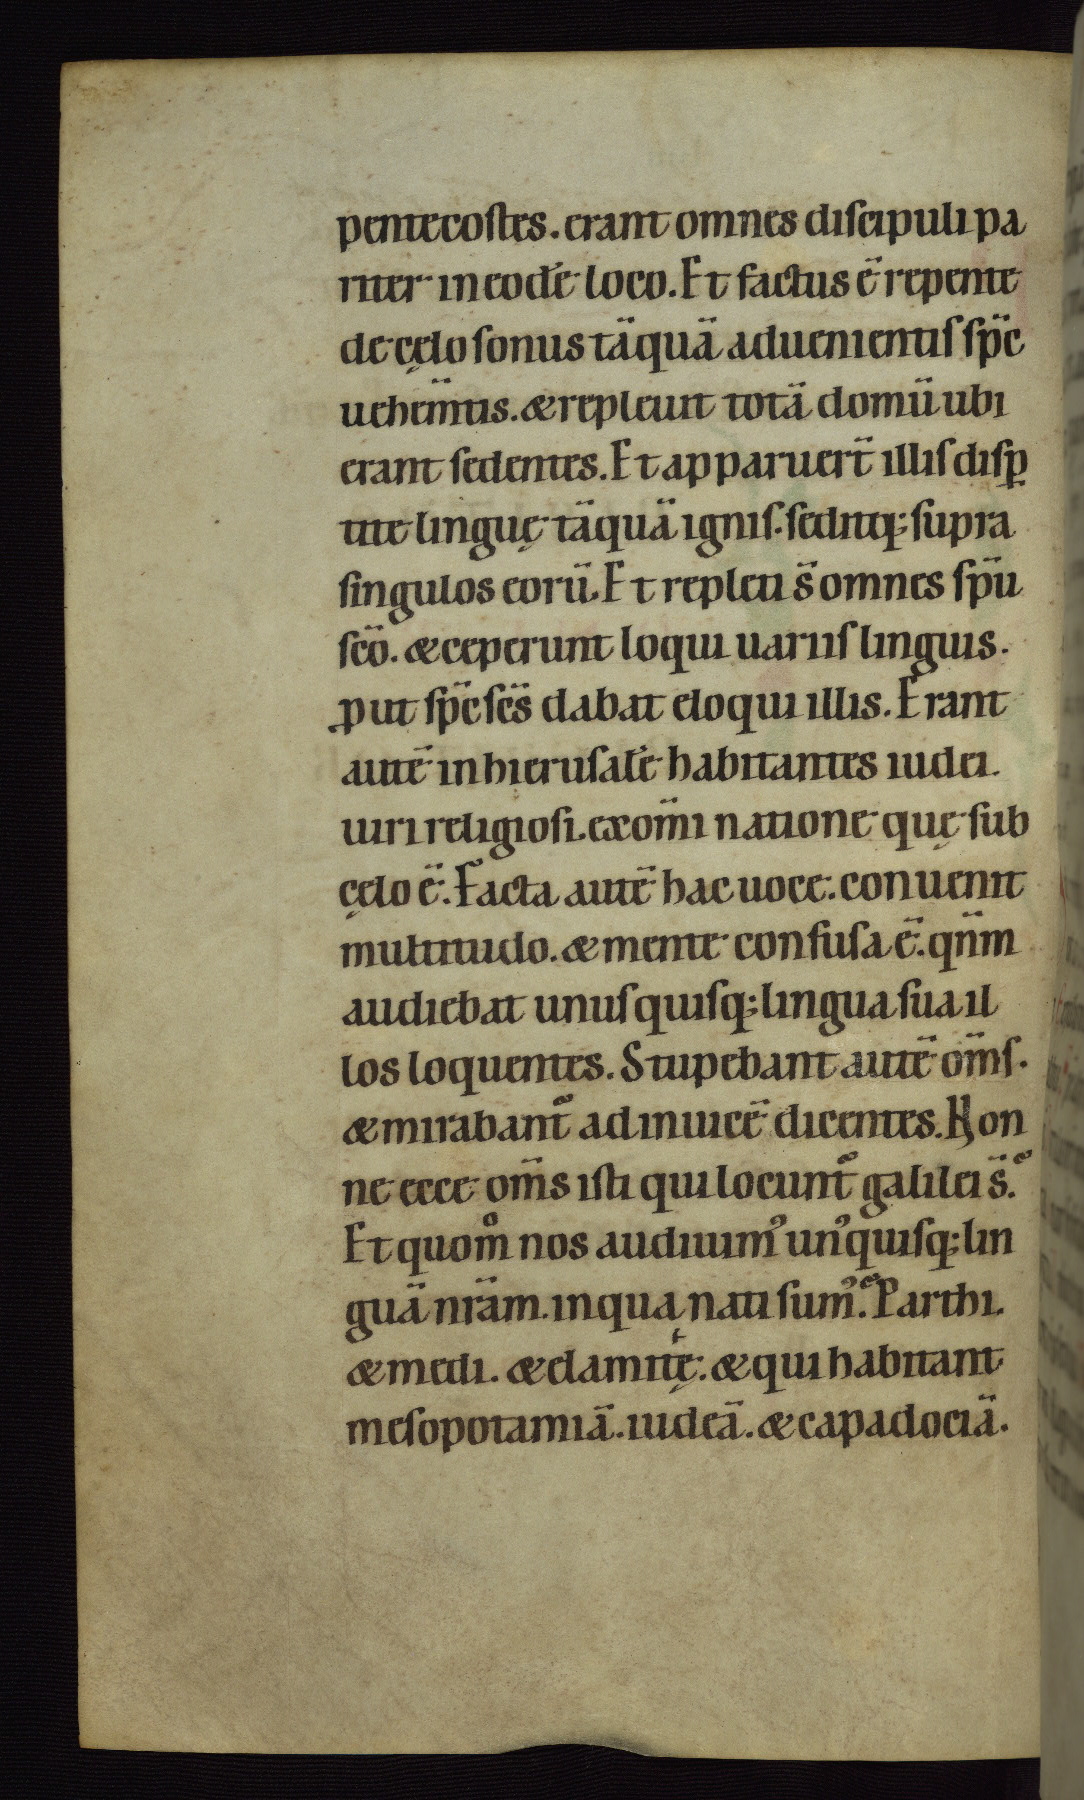 pentecoſtes. erant omnes diſcipuli pa
riter in eodē loco. Et factus ē repente
de cęlo ſonus tāquā aduenientiſ ſpc̄
uehem̄tis. & repleuit totā domū ubi
erant ſedentes. Et apparuer̄t illiſ diſꝑ
tite linguę tāquā igniſ. ſeditq; ſupra
ſingulos eorū. Et repleti s̄ omnes ſpū
ſcō. & ceperunt loqui uariiſ linguis.
ꝓut ſpc̄ ſcs̄ dabat eloqui illis. Erant
autē in hieruſalē habitantes iudei.
uiri religioſi. ex om̄i natione quę ſub
cęlo ē. Facta autē hac uoce. conuenit
multitudo. & mente confuſa ē. qn̄m
audiebat unuſquiſq; lingua ſua il
los loquentes. Stupebant autē om̄ſ.
& mirabant᷑ adinuicē dicentes. Non
ne ecce om̄s iſti qui locunt᷑ galilei s̄.
Et quom̊ nos audiuim᾿ un᾿quiſq; lin
guā nrām. in qua nati ſum᾿. Parthi.
& medi. & elamitę. & qui habitant
meſopotamiā. iudeā. & capadociā.